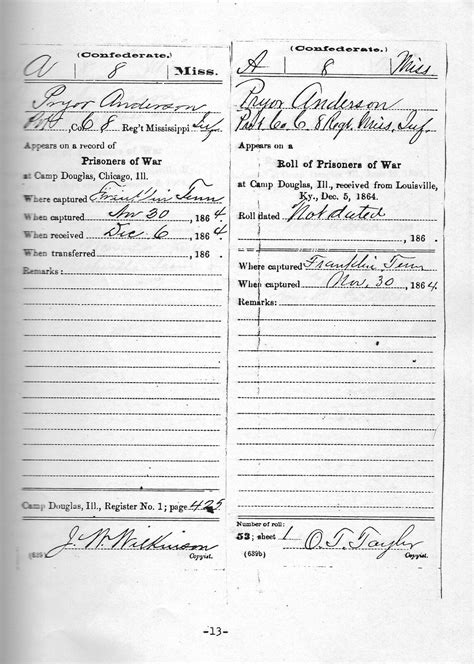 (Confederate.)
A 8 Miss.
Pryor Anderson
Pvt, Co. C 8 Reg't Mississippi Inf.
Appears on a record of
Prisoners of War
at Camp Douglas, Chicago, Ill.
Where captured Franklin Tenn
When captured Nov 30, 1864.
When received Dec 6, 1864
When transferred , 186 .
Remarks:
Camp Douglas, Ill., Register No. 1; page 425
J. W. Wilkinson
(639) Copyist.
(Confederate.)
A 8 Miss
Pryor Anderson
Pvt. Co. C, 8 Regt. Miss. Inf.
Appears on a
Roll of Prisoners of War
at Camp Douglas, Ill., received from Louisville,
Ky., Dec. 5, 1864.
Roll dated Not dated
, 186 .
Where captured Franklin, Tenn
When captured Nov. 30, 1864.
Remarks:
Number of roll:
53; sheet 1
O. T. Taylor
(639b) Copyist.
-13-